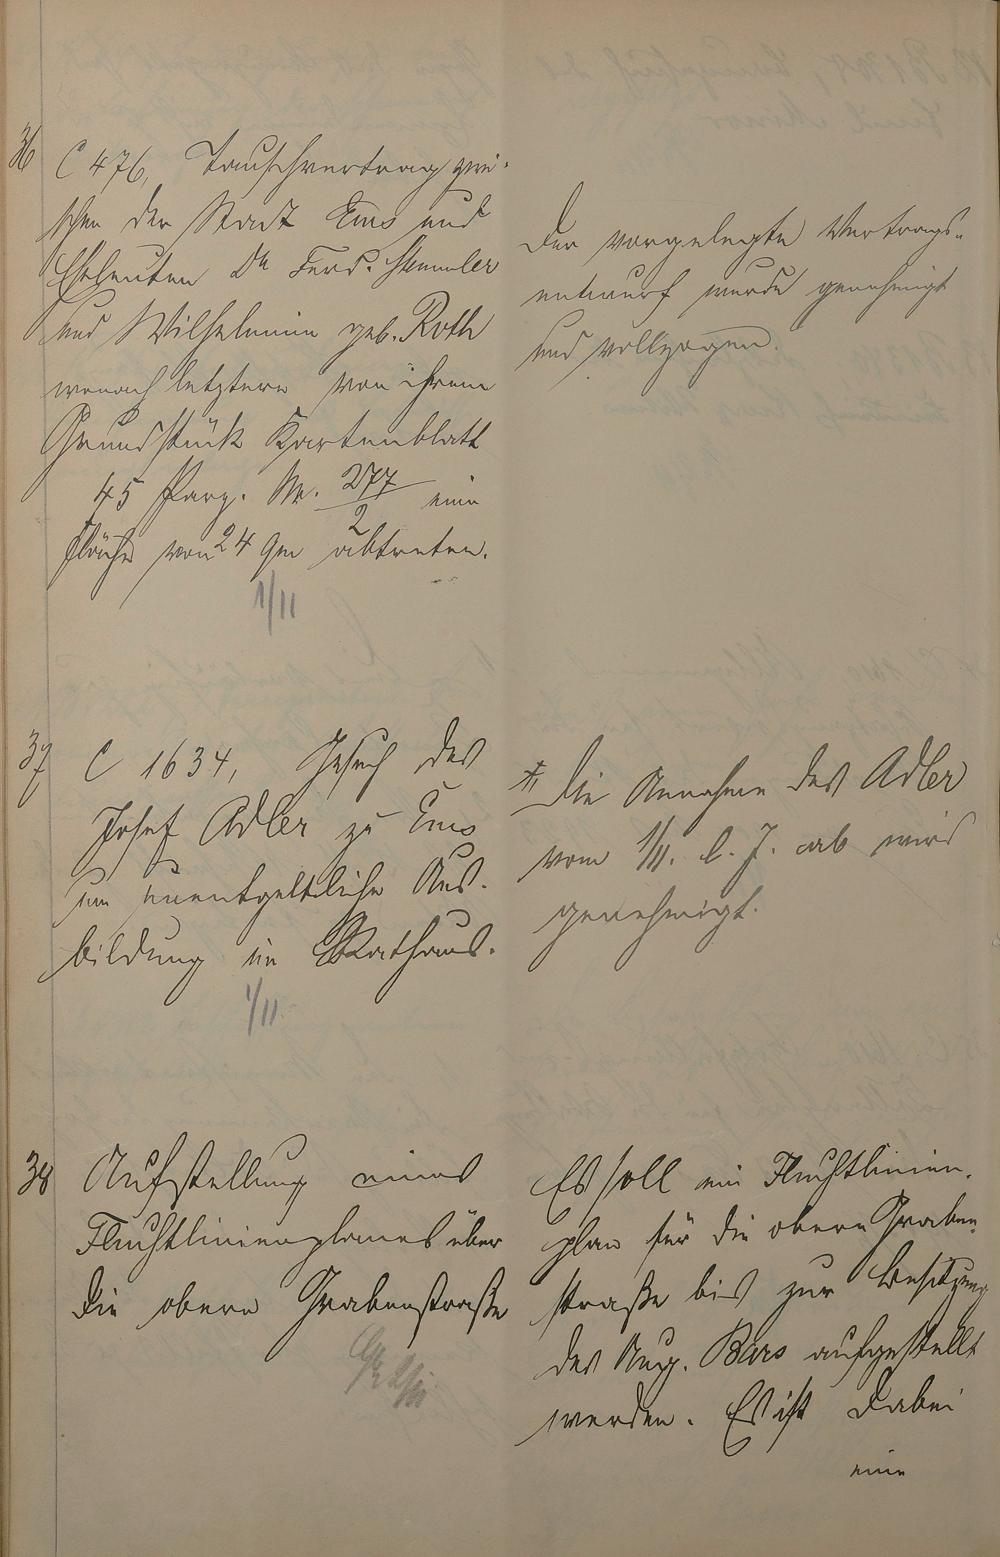 36
C 476, Tauschvertrag zwi-
schen der Stadt Ems und
Eheleuten Dr Ferd. Stemmler
und Wilhelmine geb. Roth
wonach letztere von ihrem
Grundstück Kartenblatt
45 Parz. Nr. 277/2 eine
Fläche von 24 qm abtreten.
1/11
Der vorgelegte Vertrags-
entwurf wurde genehmigt
und vollzogen.
37
C 1634, Gesuch des
Josef Adler zu Ems
um unentgeltliche Aus-
bildung im Rathaus.
1/11
Die Annahme des Adler
vom 1/11. l. J. ab wird
genehmigt.
38
Aufstellung eines
Fluchtlinienplanes über
die obere Grabenstraße
Es soll ein Fluchtlinien-
plan für die obere Graben-
straße bis zur Besitzung
des Aug. Bärs aufgestellt
werden. Es ist dabei
eine